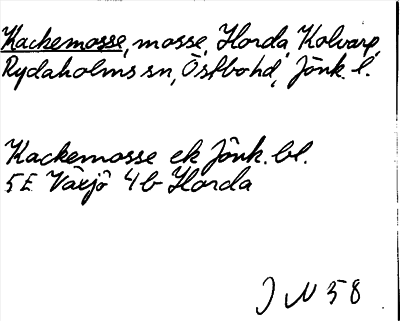 Kackemosse, mosse, Horda, Kolvarp,
Rydaholms sn, Östbo hd, Jönk. l.
Kackemosse ek Jönk. bl.
5E Växjö 4b Horda
J N 58